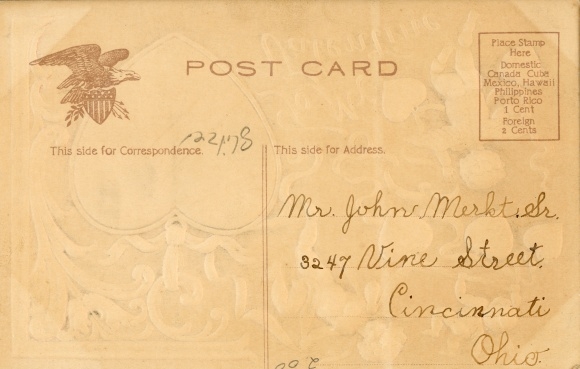 POST CARD
Place Stamp
Here
Domestic
Canada Cuba
Mexico, Hawaii
Philippines
Porto Rico
1 Cent
Foreign
2 Cents
This side for Correspondence.
This side for Address.
Mr. John Merkt. Sr.
3247 Vine Street.
Cincinnati
Ohio.